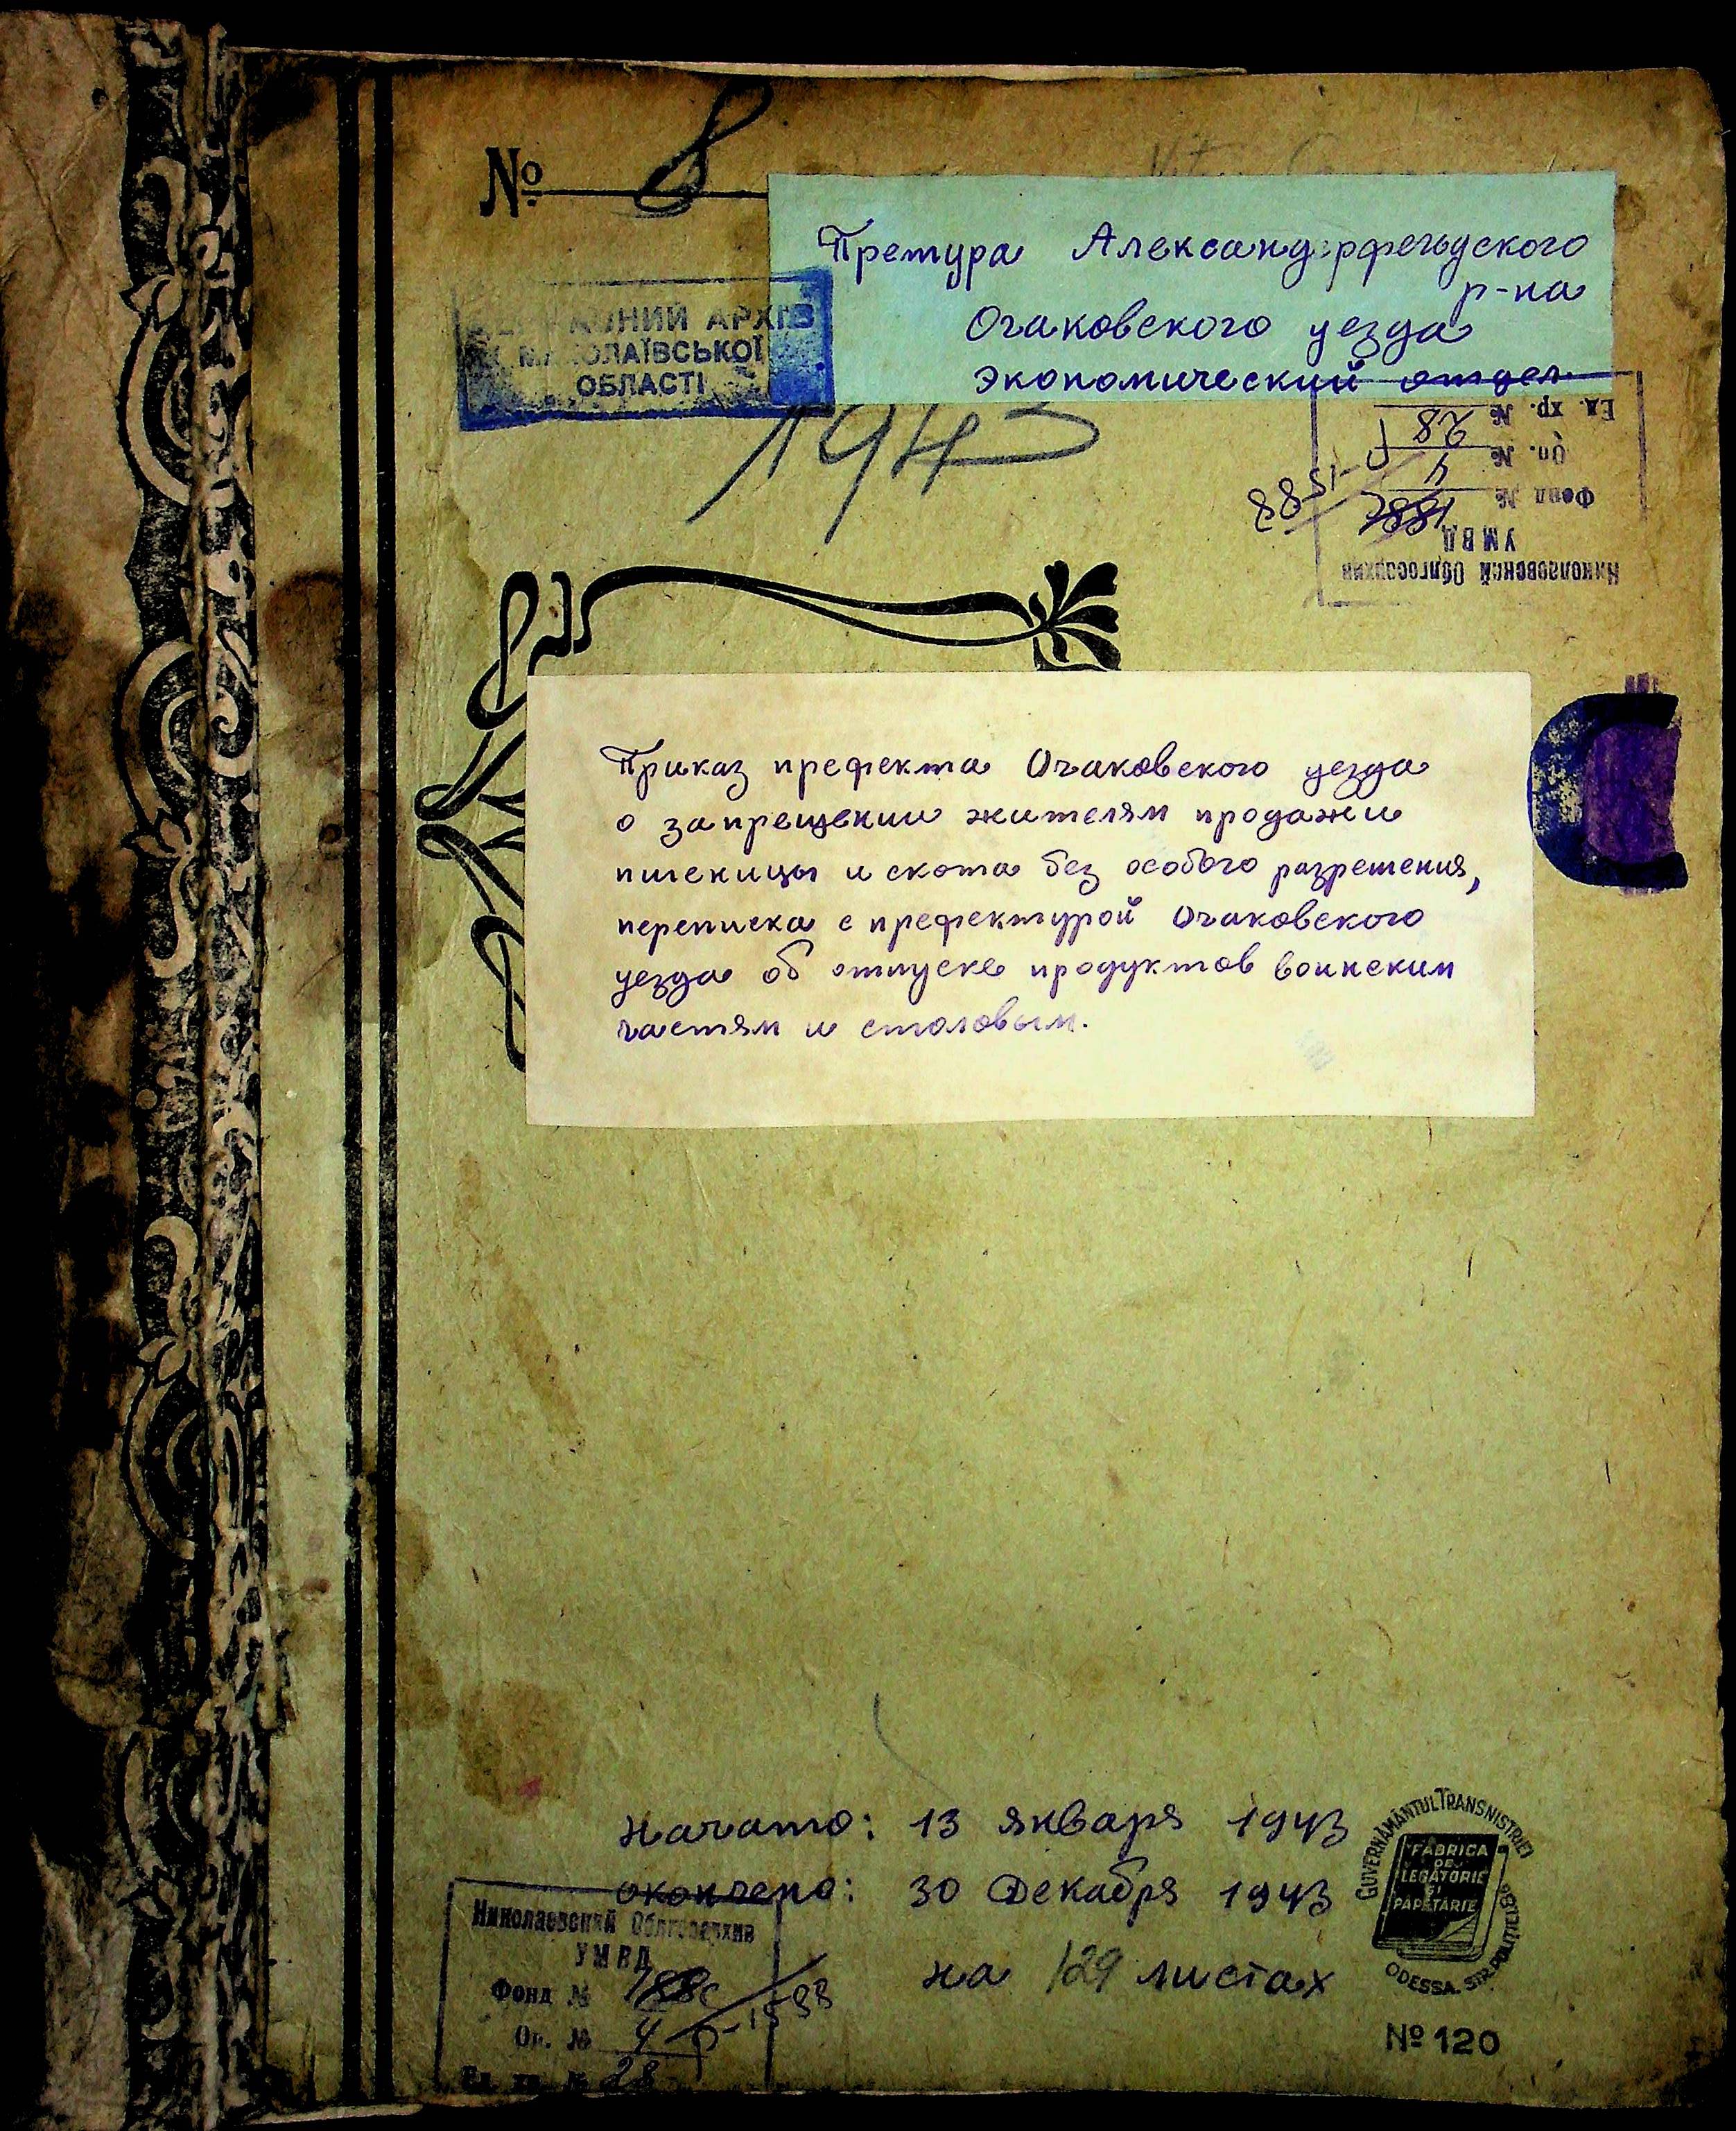 № 8
Претура Александрфельдского
р-на
Очаковского уезда
экономический отдел
АРХІВ
МИКОЛАЇВСЬКОЇ
ОБЛАСТІ
1943
Николаевской Облгосархив
УМВД
Фонд №
Оп. № 4
Ед. хр. № 28
Приказ префекта Очаковского уезда
о запрещении жителям продажи
пшеницы и скота без особого разрешения,
переписка с префектурой Очаковского
уезда об отпуске продуктов воинским
частям и столовым.
начато: 13 января 1943
окончено: 30 декабря 1943
на 129 листах
Николаевский Облгосархив
УМВД
Фонд №
Оп. № 4
Ед. хр. № 28
GUVERNĂMÂNTUL TRANSNISTRIEI
FABRICA
DE
LEGĂTORIE
ȘI
PAPETĂRIE
ODESSA. STR.
№ 120